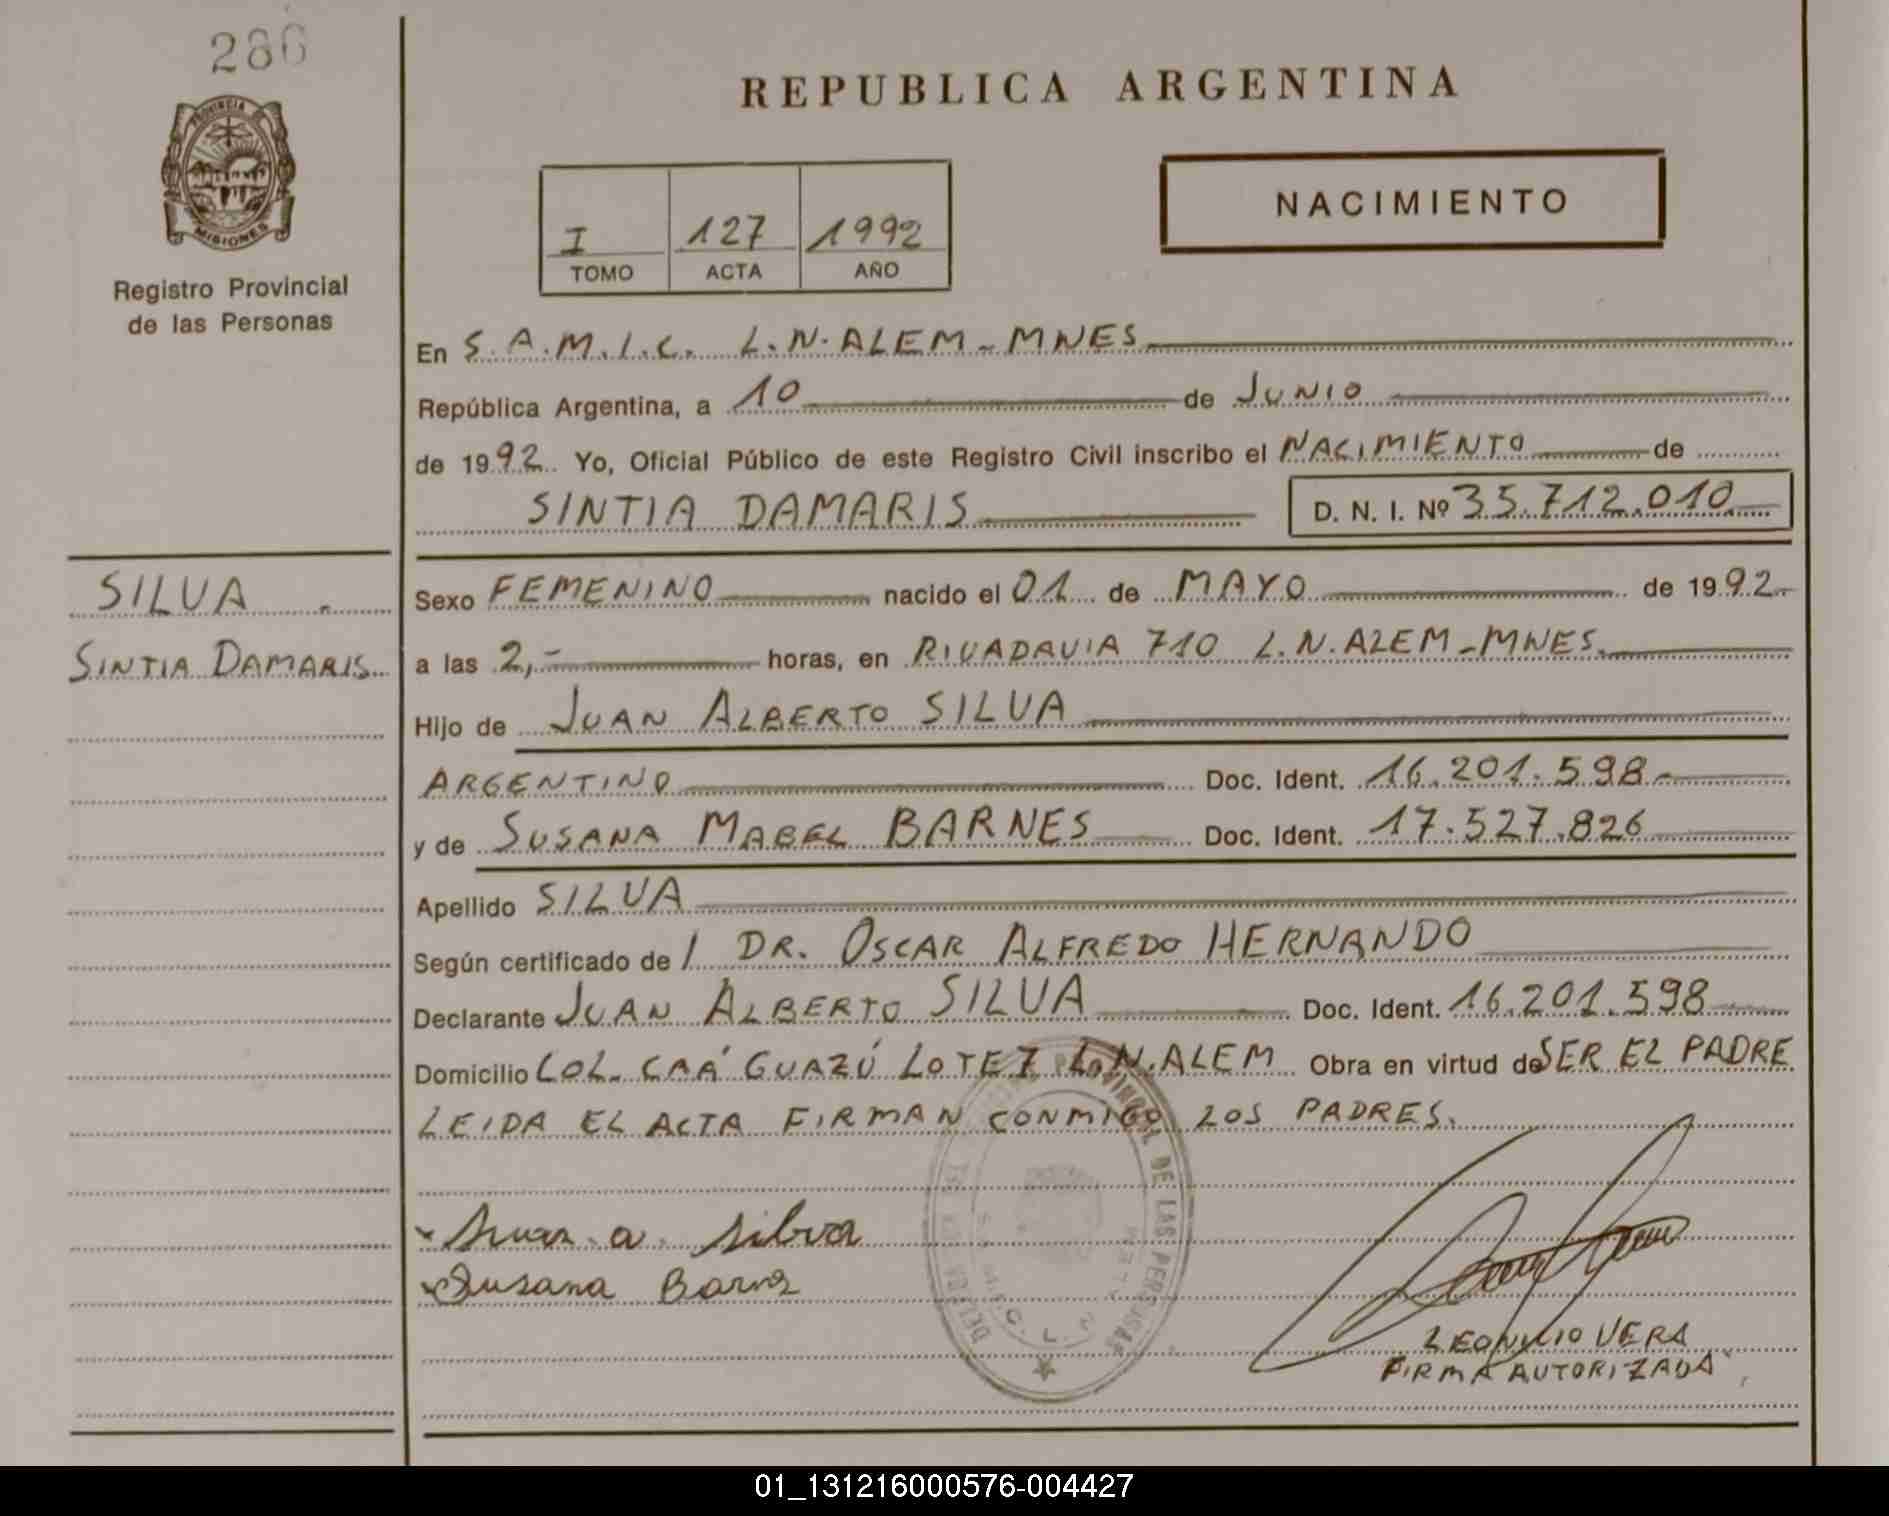 286
PROVINCIA DE
MISIONES
Registro Provincial
de las Personas
REPUBLICA ARGENTINA
I 127 1992
TOMO ACTA AÑO
NACIMIENTO
En S.A.M.I.C. L.N.ALEM-MNES
República Argentina, a 10 de JUNIO
de 1992. Yo, Oficial Público de este Registro Civil inscribo el NACIMIENTO de
SINTIA DAMARIS D. N. I. Nº 35.712.010
SILVA
SINTIA DAMARIS
Sexo FEMENINO nacido el 01 de MAYO de 1992-
a las 2,- horas, en RIVADAVIA 710 L.N.ALEM-MNES.
Hijo de JUAN ALBERTO SILVA
ARGENTINO Doc. Ident. 16.201.598-
y de SUSANA MABEL BARNES Doc. Ident. 17.527.826
Apellido SILVA
Según certificado de / DR. OSCAR ALFREDO HERNANDO
Declarante JUAN ALBERTO SILVA Doc. Ident. 16.201.598
Domicilio COL. CAÁ GUAZÚ LOTE 7 L.N.ALEM Obra en virtud de SER EL PADRE
LEIDA EL ACTA FIRMAN CONMIGO LOS PADRES.
Juan a. silva
Susana Barns
DE LAS PERSONAS
LEONILIO VERA
FIRMA AUTORIZADA
01_131216000576-004427